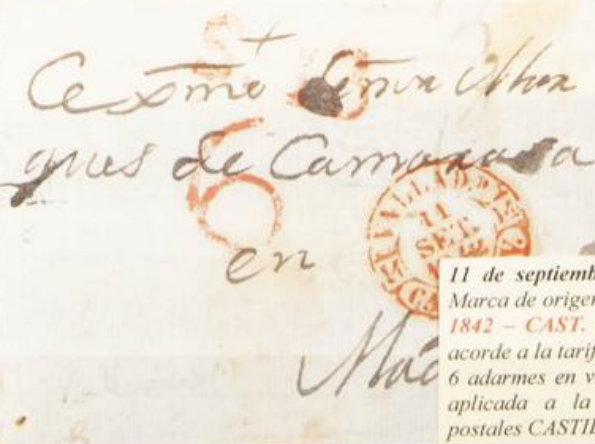 Exmo Señor Mar
ques de Camarasa
en
Mad
6
VALLADOLID
11
SET
CA
11 de septiemb
Marca de origen
1842 – CAST.
acorde a la tarif
6 adarmes en v
aplicada a la
postales CASTIL